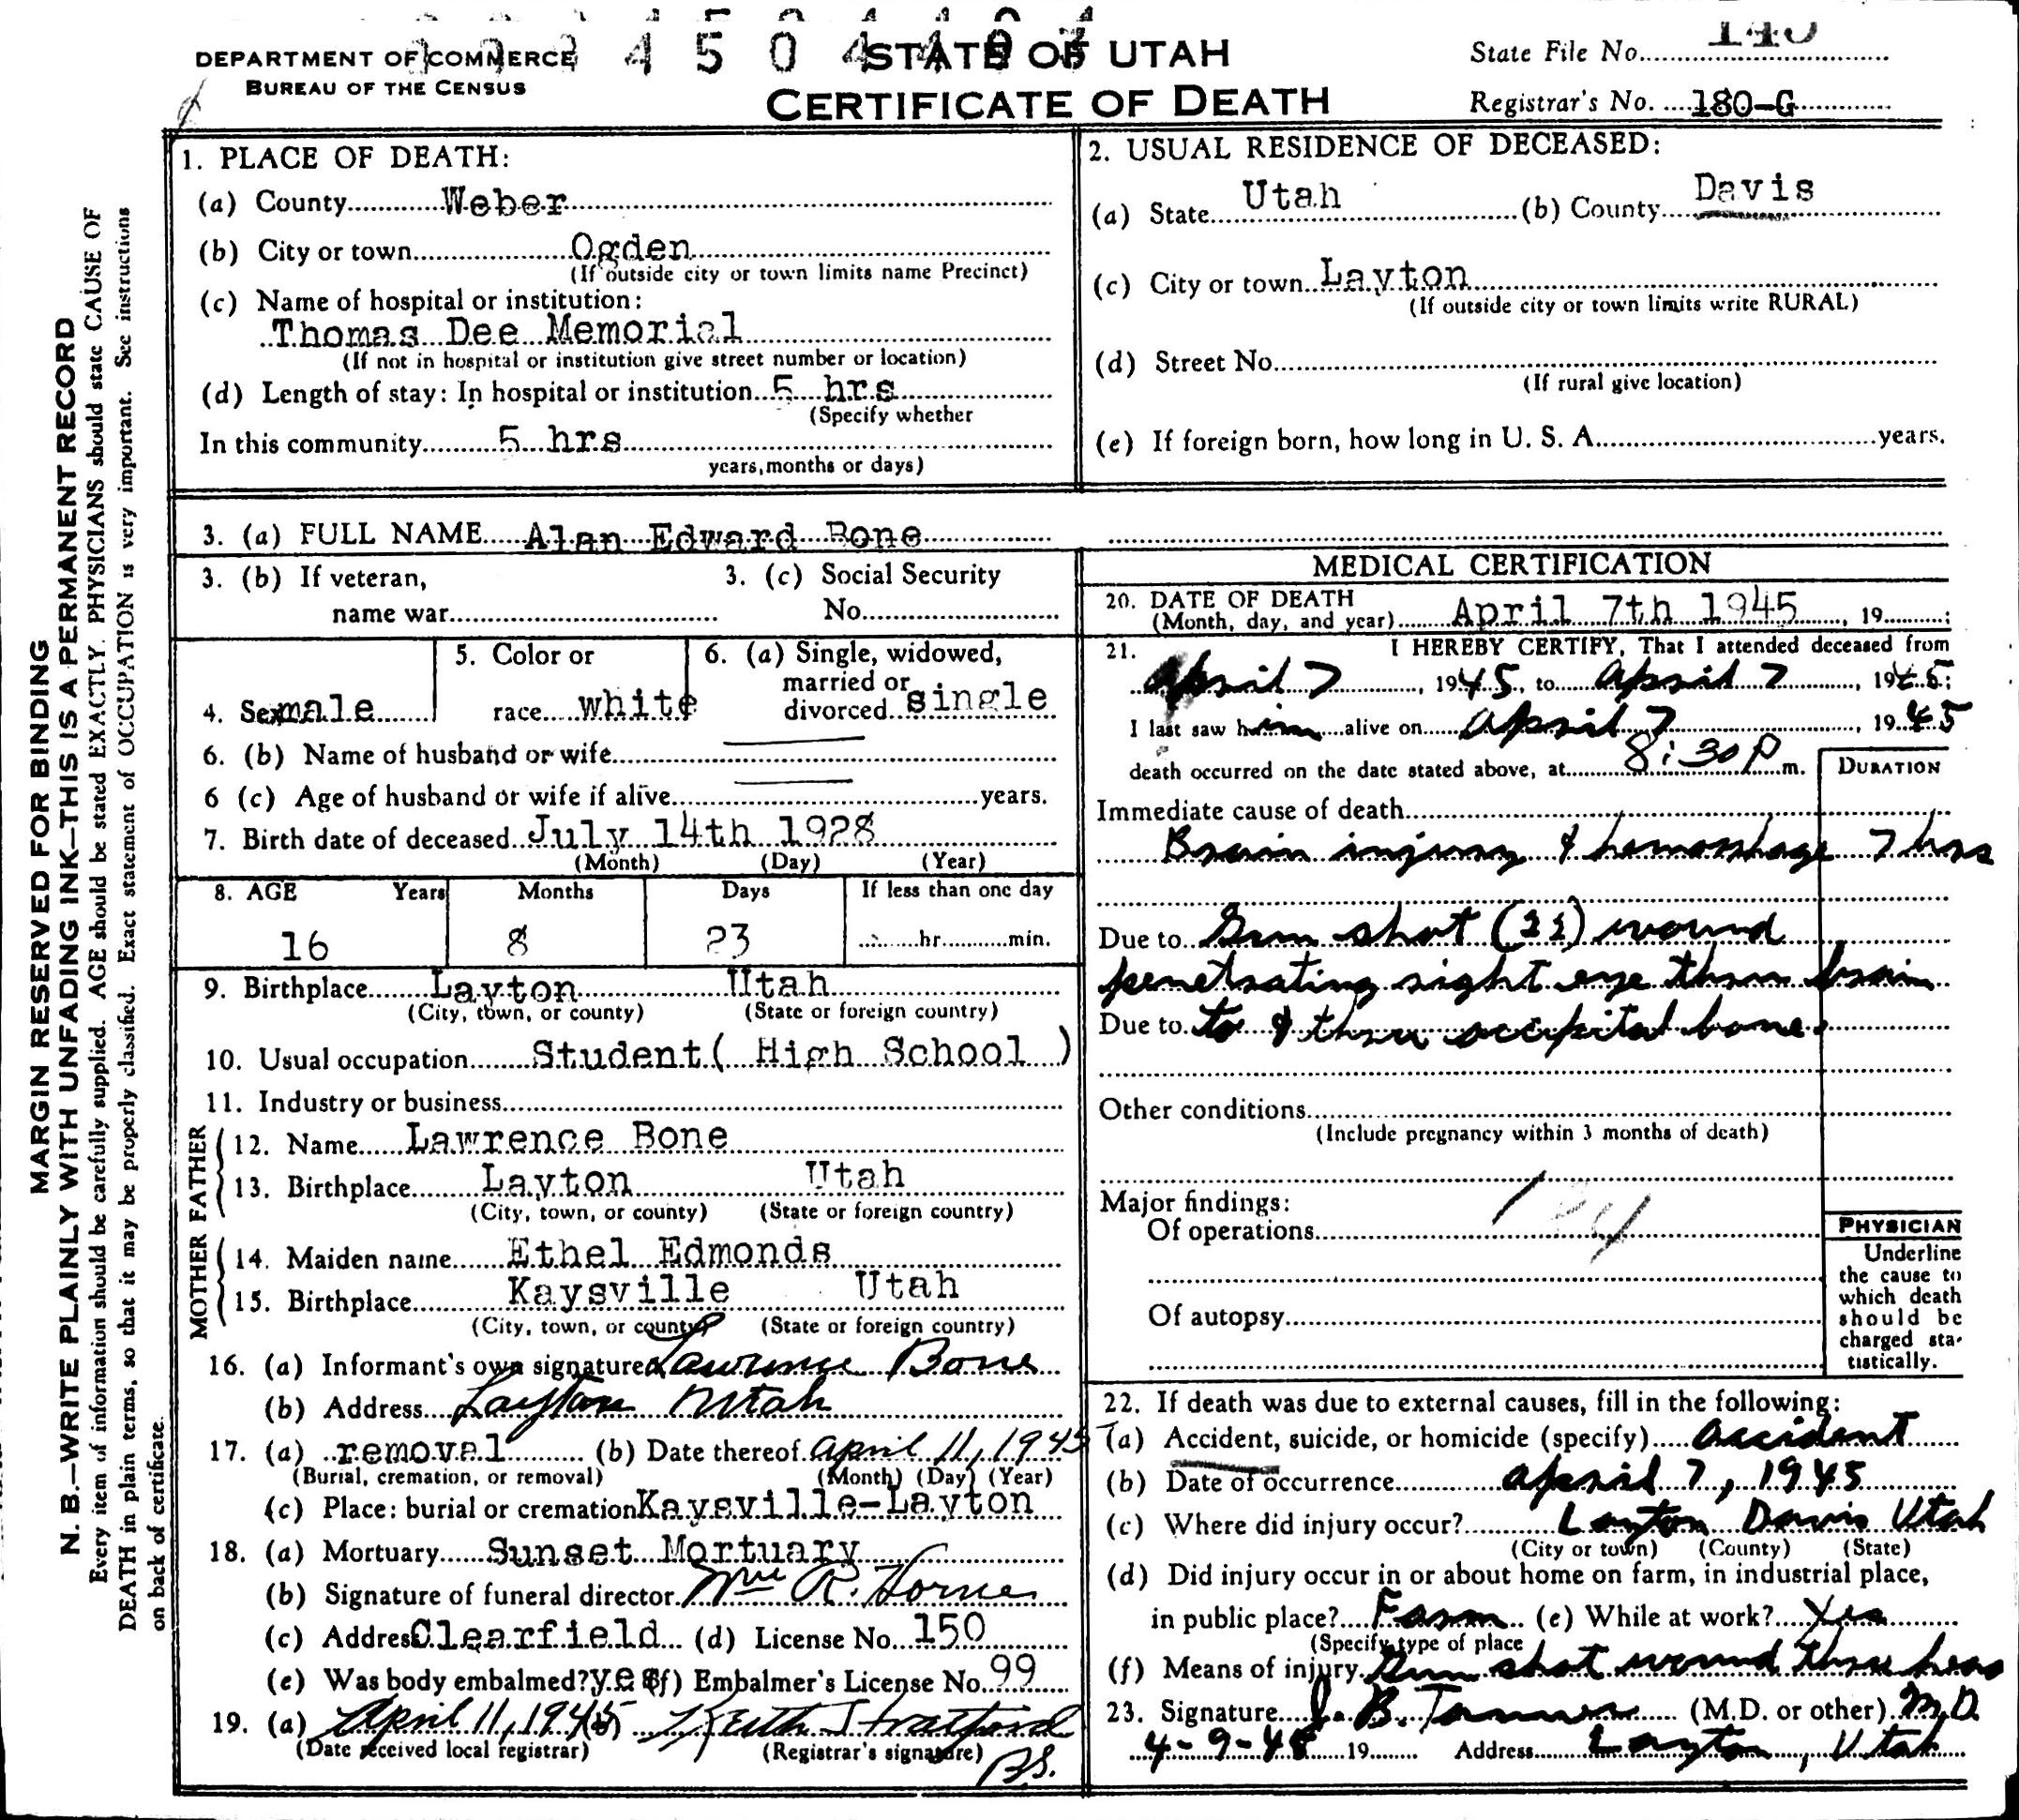 DEPARTMENT OF COMMERCE
BUREAU OF THE CENSUS
STATE OF UTAH
CERTIFICATE OF DEATH
State File No.
Registrar's No. 180-G
MARGIN RESERVED FOR BINDING
N. B.—WRITE PLAINLY WITH UNFADING INK—THIS IS A PERMANENT RECORD
Every item of information should be carefully supplied. AGE should be stated EXACTLY. PHYSICIANS should state CAUSE OF
DEATH in plain terms, so that it may be properly classified. Exact statement of OCCUPATION is very important. See instructions
on back of certificate.
1. PLACE OF DEATH:
(a) County Weber
(b) City or town Ogden
(If outside city or town limits name Precinct)
(c) Name of hospital or institution:
Thomas Dee Memorial
(If not in hospital or institution give street number or location)
(d) Length of stay: In hospital or institution 5 hrs
(Specify whether
In this community 5 hrs
years, months or days)
2. USUAL RESIDENCE OF DECEASED:
(a) State Utah (b) County Davis
(c) City or town Layton
(If outside city or town limits write RURAL)
(d) Street No.
(If rural give location)
(e) If foreign born, how long in U. S. A. years.
3. (a) FULL NAME Alan Edward Bone
3. (b) If veteran,
name war
3. (c) Social Security
No.
4. Sex male
5. Color or
race white
6. (a) Single, widowed,
married or
divorced single
6. (b) Name of husband or wife
6 (c) Age of husband or wife if alive years.
7. Birth date of deceased July 14th 1928
(Month) (Day) (Year)
8. AGE Years Months Days If less than one day
16 8 23 hr. min.
9. Birthplace Layton Utah
(City, town, or county) (State or foreign country)
10. Usual occupation Student ( High School )
11. Industry or business
FATHER
12. Name Lawrence Bone
13. Birthplace Layton Utah
(City, town, or county) (State or foreign country)
MOTHER
14. Maiden name Ethel Edmonds
15. Birthplace Kaysville Utah
(City, town, or county) (State or foreign country)
16. (a) Informant's own signature Lawrence Bone
(b) Address Layton Utah
17. (a) removal (b) Date thereof April 11, 1945
(Burial, cremation, or removal) (Month) (Day) (Year)
(c) Place: burial or cremation Kaysville-Layton
18. (a) Mortuary Sunset Mortuary
(b) Signature of funeral director Wm R. Horne
(c) Address Clearfield (d) License No. 150
(e) Was body embalmed? yes (f) Embalmer's License No. 99
19. (a) April 11, 1945 (b) Keith Stratford
(Date received local registrar) (Registrar's signature)
MEDICAL CERTIFICATION
20. DATE OF DEATH
(Month, day, and year) April 7th 1945, 19 ;
21. I HEREBY CERTIFY, That I attended deceased from
April 7, 1945, to April 7, 1945;
I last saw him alive on April 7, 1945
death occurred on the date stated above, at 8:30 P m.
DURATION
Immediate cause of death
Brain injury & hemorrhage 7 hrs
Due to Gun shot (22) wound
penetrating right eye thru brain
Due to to & thru occipital bone.
Other conditions
(Include pregnancy within 3 months of death)
Major findings:
Of operations
Of autopsy
PHYSICIAN
Underline
the cause to
which death
should be
charged sta-
tistically.
22. If death was due to external causes, fill in the following:
(a) Accident, suicide, or homicide (specify) Accident
(b) Date of occurrence April 7, 1945
(c) Where did injury occur? Layton Davis Utah
(City or town) (County) (State)
(d) Did injury occur in or about home on farm, in industrial place,
in public place? Farm (e) While at work? Yes
(Specify type of place
(f) Means of injury Gun shot wound thru head
23. Signature J. B. Tanner (M.D. or other) M.D.
4-9-45 19 Address Layton, Utah